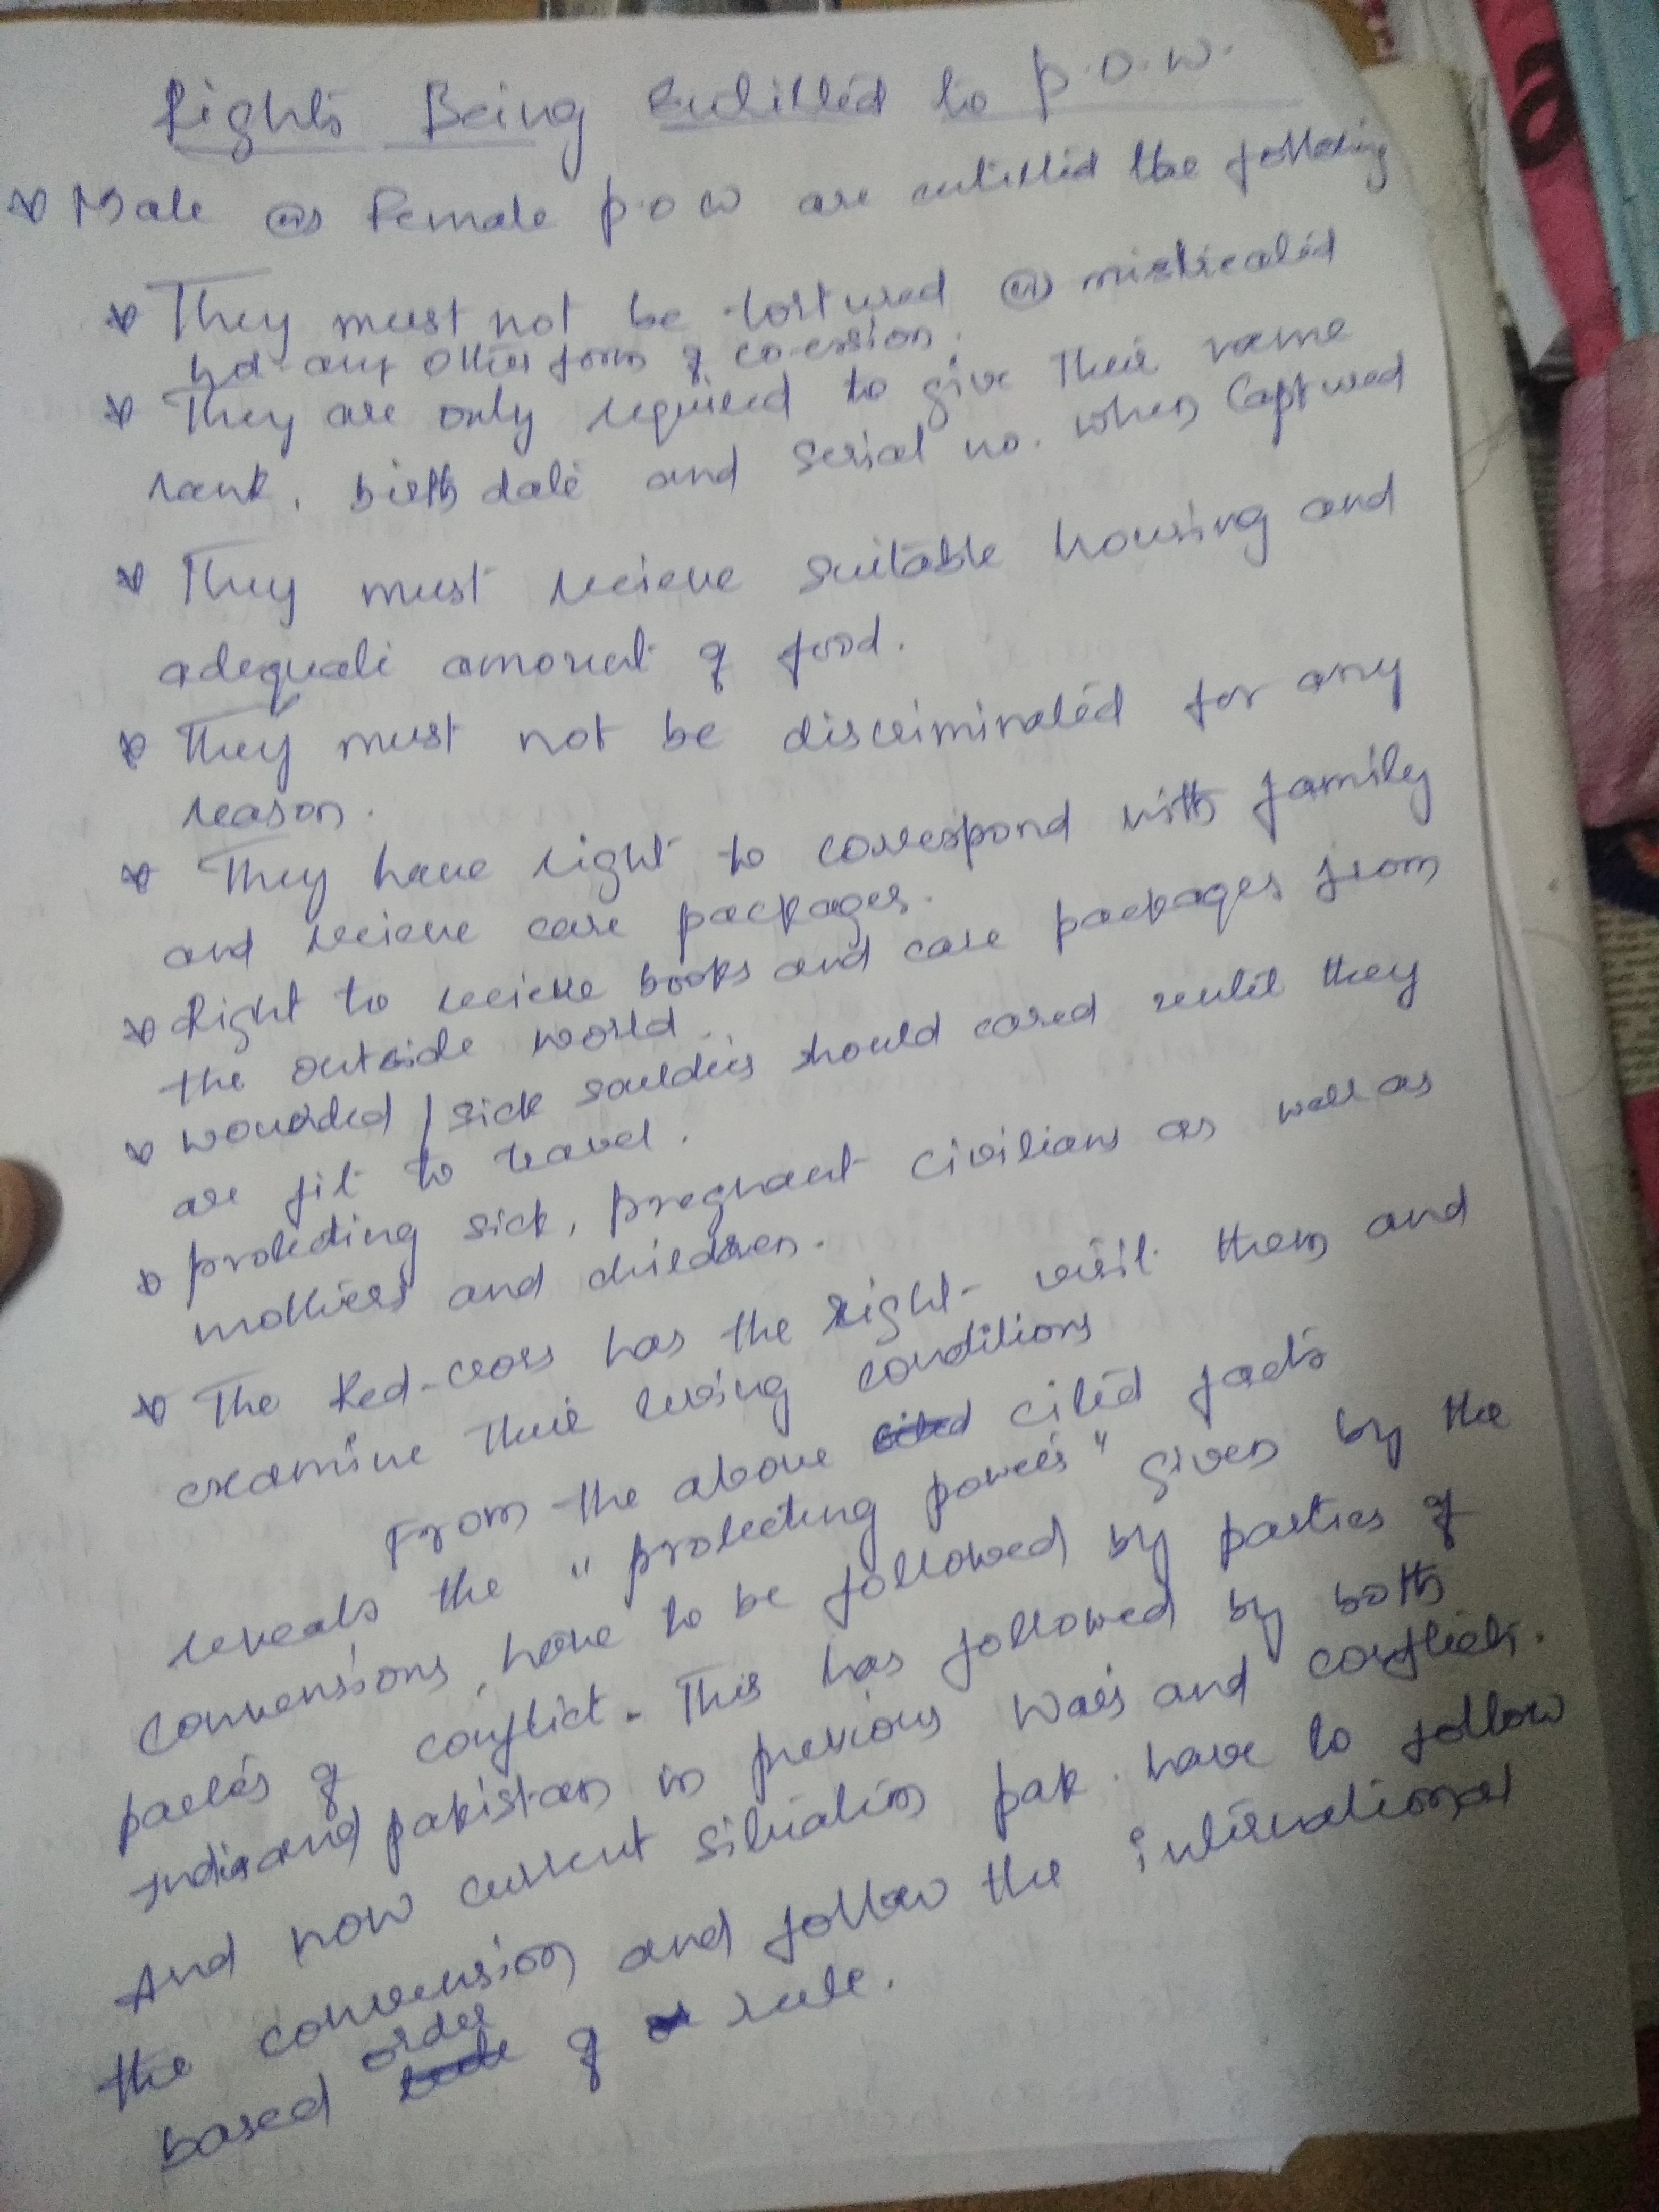 Rights Being Entitled to P.O.W.
Male (or) Female P.O.W are entitled the following
They must not be tortured (or) mistreated
not any other form of co-ersion.
They are only required to give their name
rank, birth date and serial no. when Captured
They must recieve suitable housing and
adequate amount of food.
They must not be discriminated for any
reason.
They have right to correspond with family
and recieve care packages.
Right to recieve books and care packages from
the outside world.
wounded / sick souldies should cared until they
are fit to travel.
protecting sick, pregnant civilians as well as
mothers and children.
The Red-cross has the right visit them and
examine their living conditions
From the above cited facts
reveals the "protecting powers" given by the
convensions, have to be followed by parties of
parties of conflict. This has followed by both
India and pakistan in previous wars and conflicts.
And now current situation pak. have to follow
the convension and follow the international
based order of rule.